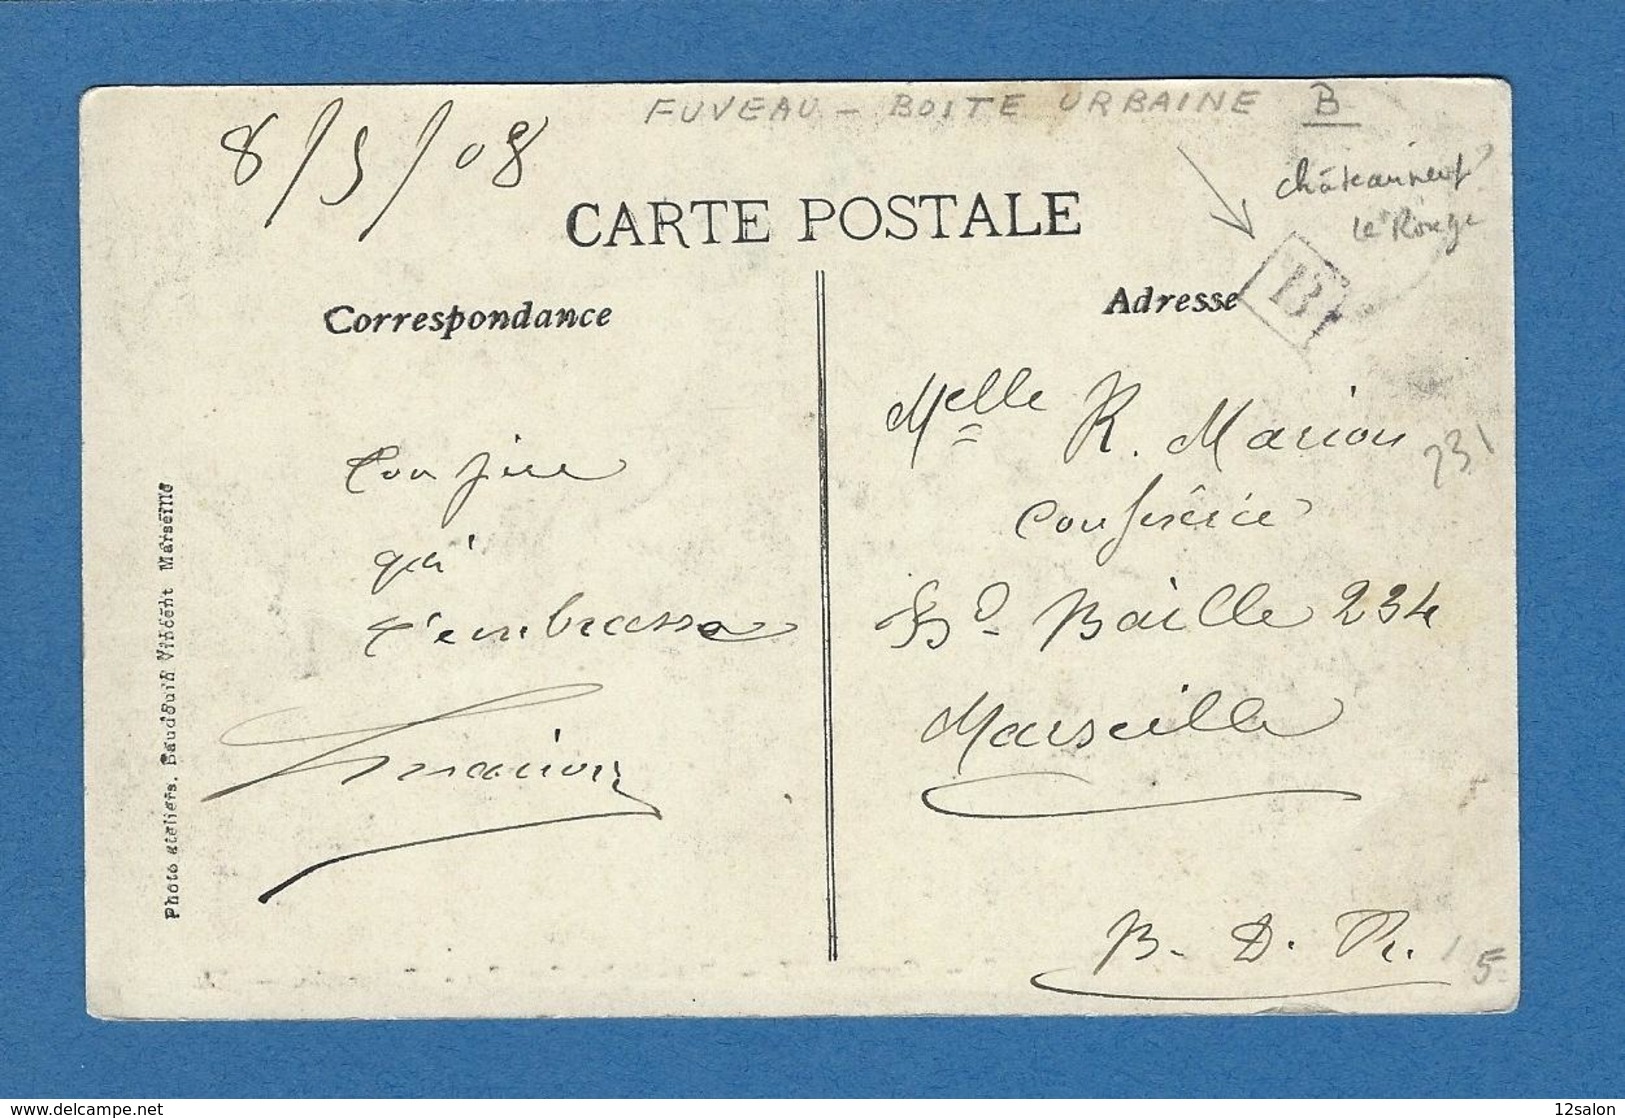 FUVEAU - BOITE URBAINE B
8/5/08
châteauneuf
le Rouge
CARTE POSTALE
B
Correspondance
Adresse
Ton père
qui
t'embrasse
Marion
Melle R. Marion
Confiserie
Bd Baille 234
Marseille
B. D. R.
231
5
Photo ateliers. Baudouin Vincent Marseille
www.delcampe.net
12salon